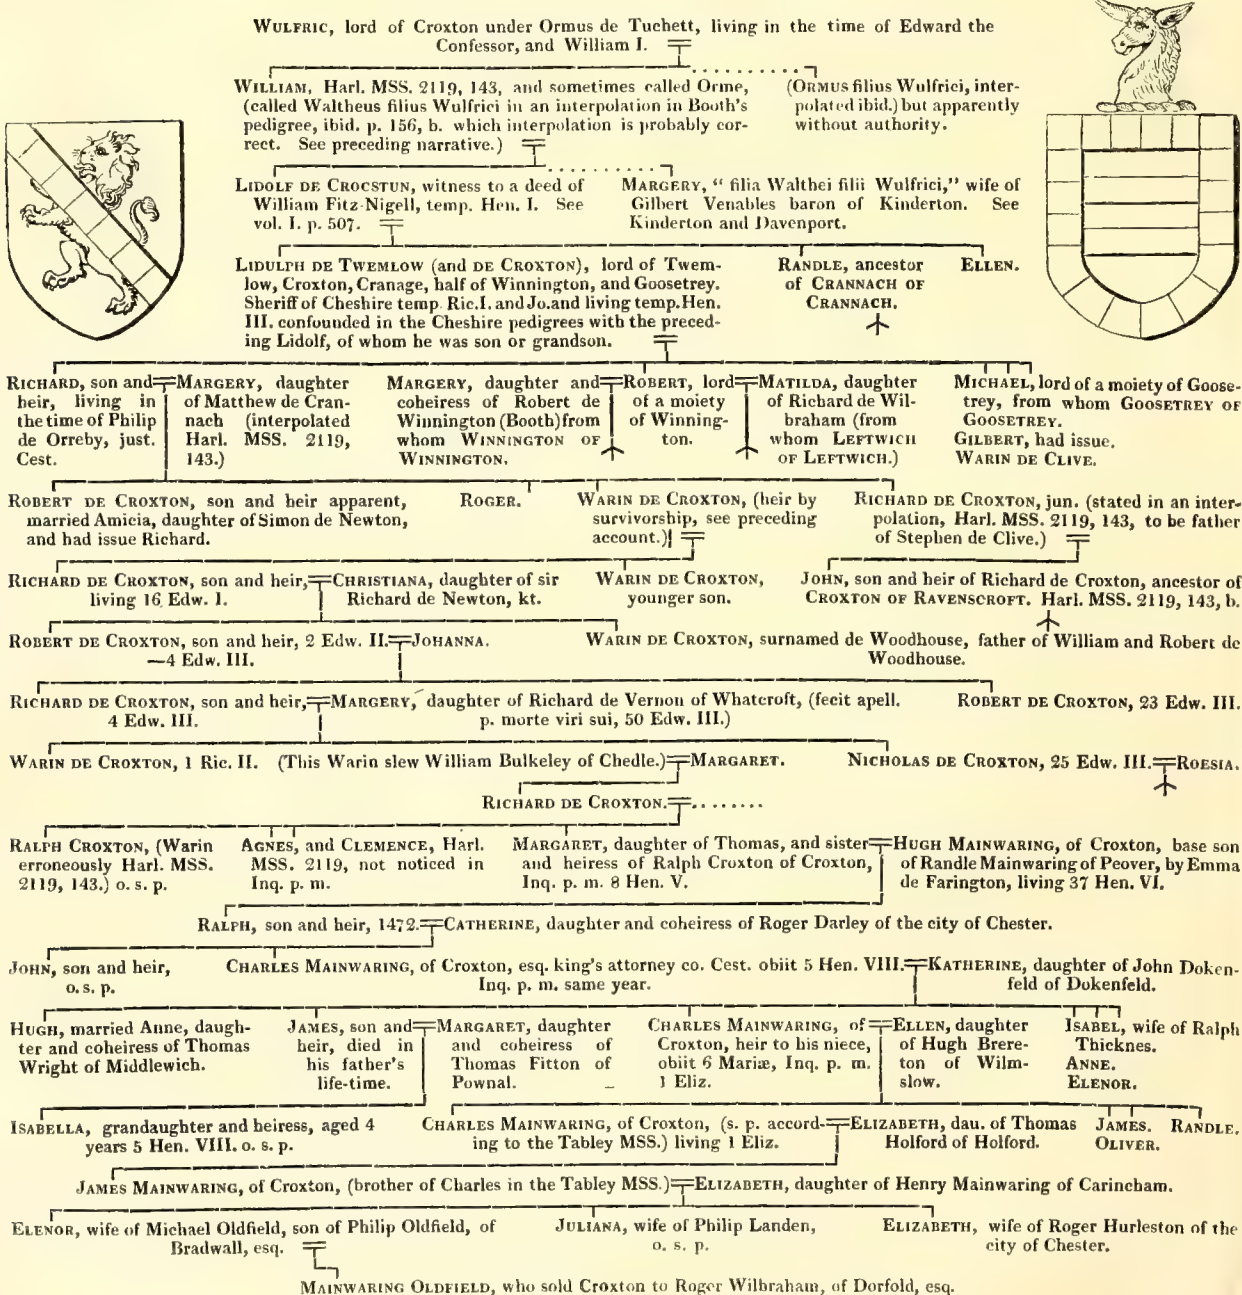 WULFRIC, lord of Croxton under Ormus de Tuchett, living in the time of Edward the
Confessor, and William I.
WILLIAM, Harl. MSS. 2119, 143, and sometimes called Orme,
(called Waltheus filius Wulfrici in an interpolation in Booth's
pedigree, ibid. p. 156, b. which interpolation is probably cor-
rect. See preceding narrative.)
(ORMUS filius Wulfrici, inter-
polated ibid.) but apparently
without authority.
LIDOLF DE CROCSTUN, witness to a deed of
William Fitz-Nigell, temp. Hen. I. See
vol. I. p. 507.
MARGERY, "filia Walthei filii Wulfrici," wife of
Gilbert Venables baron of Kinderton. See
Kinderton and Davenport.
LIDULPH DE TWEMLOW (and DE CROXTON), lord of Twem-
low, Croxton, Cranage, half of Winnington, and Goosetrey.
Sheriff of Cheshire temp. Ric. I. and Jo. and living temp. Hen.
III. confounded in the Cheshire pedigrees with the preced-
ing Lidolf, of whom he was son or grandson.
RANDLE, ancestor
of CRANNACH OF
CRANNACH.
ELLEN.
RICHARD, son and
heir, living in
the time of Philip
de Orreby, just.
Cest.
MARGERY, daughter
of Matthew de Cran-
nach (interpolated
Harl. MSS. 2119,
143.)
MARGERY, daughter and
coheiress of Robert de
Winnington (Booth) from
whom WINNINGTON OF
WINNINGTON.
ROBERT, lord
of a moiety
of Winning-
ton.
MATILDA, daughter
of Richard de Wil-
braham (from
whom LEFTWICH
OF LEFTWICH.)
MICHAEL, lord of a moiety of Goose-
trey, from whom GOOSETREY OF
GOOSETREY.
GILBERT, had issue.
WARIN DE CLIVE.
ROBERT DE CROXTON, son and heir apparent,
married Amicia, daughter of Simon de Newton,
and had issue Richard.
ROGER.
WARIN DE CROXTON, (heir by
survivorship, see preceding
account.)
RICHARD DE CROXTON, jun. (stated in an inter-
polation, Harl. MSS. 2119, 143, to be father
of Stephen de Clive.)
RICHARD DE CROXTON, son and heir,
living 16 Edw. I.
CHRISTIANA, daughter of sir
Richard de Newton, kt.
WARIN DE CROXTON,
younger son.
JOHN, son and heir of Richard de Croxton, ancestor of
CROXTON OF RAVENSCROFT. Harl. MSS. 2119, 143, b.
ROBERT DE CROXTON, son and heir, 2 Edw. II.
—4 Edw. III.
JOHANNA.
WARIN DE CROXTON, surnamed de Woodhouse, father of William and Robert de
Woodhouse.
RICHARD DE CROXTON, son and heir,
4 Edw. III.
MARGERY, daughter of Richard de Vernon of Whatcroft, (fecit apell.
p. morte viri sui, 50 Edw. III.)
ROBERT DE CROXTON, 23 Edw. III.
WARIN DE CROXTON, 1 Ric. II. (This Warin slew William Bulkeley of Chedle.)
MARGARET.
NICHOLAS DE CROXTON, 25 Edw. III.
ROESIA.
RICHARD DE CROXTON. ........
RALPH CROXTON, (Warin
erroneously Harl. MSS.
2119, 143.) o. s. p.
AGNES, and CLEMENCE, Harl.
MSS. 2119, not noticed in
Inq. p. m.
MARGARET, daughter of Thomas, and sister
and heiress of Ralph Croxton of Croxton,
Inq. p. m. 8 Hen. V.
HUGH MAINWARING, of Croxton, base son
of Randle Mainwaring of Peover, by Emma
de Farington, living 37 Hen. VI.
RALPH, son and heir, 1472.
CATHERINE, daughter and coheiress of Roger Darley of the city of Chester.
JOHN, son and heir,
o. s. p.
CHARLES MAINWARING, of Croxton, esq. king's attorney co. Cest. obiit 5 Hen. VIII.
Inq. p. m. same year.
KATHERINE, daughter of John Doken-
feld of Dokenfeld.
HUGH, married Anne, daugh-
ter and coheiress of Thomas
Wright of Middlewich.
JAMES, son and
heir, died in
his father's
life-time.
MARGARET, daughter
and coheiress of
Thomas Fitton of
Pownal.
CHARLES MAINWARING, of
Croxton, heir to his niece,
obiit 6 Mariæ, Inq. p. m.
1 Eliz.
ELLEN, daughter
of Hugh Brere-
ton of Wilm-
slow.
ISABEL, wife of Ralph
Thicknes.
ANNE.
ELENOR.
ISABELLA, grandaughter and heiress, aged 4
years 5 Hen. VIII. o. s. p.
CHARLES MAINWARING, of Croxton, (s. p. accord-
ing to the Tabley MSS.) living 1 Eliz.
ELIZABETH, dau. of Thomas
Holford of Holford.
JAMES.
OLIVER.
RANDLE.
JAMES MAINWARING, of Croxton, (brother of Charles in the Tabley MSS.)
ELIZABETH, daughter of Henry Mainwaring of Carincham.
ELENOR, wife of Michael Oldfield, son of Philip Oldfield, of
Bradwall, esq.
JULIANA, wife of Philip Landen,
o. s. p.
ELIZABETH, wife of Roger Hurleston of the
city of Chester.
MAINWARING OLDFIELD, who sold Croxton to Roger Wilbraham, of Dorfold, esq.